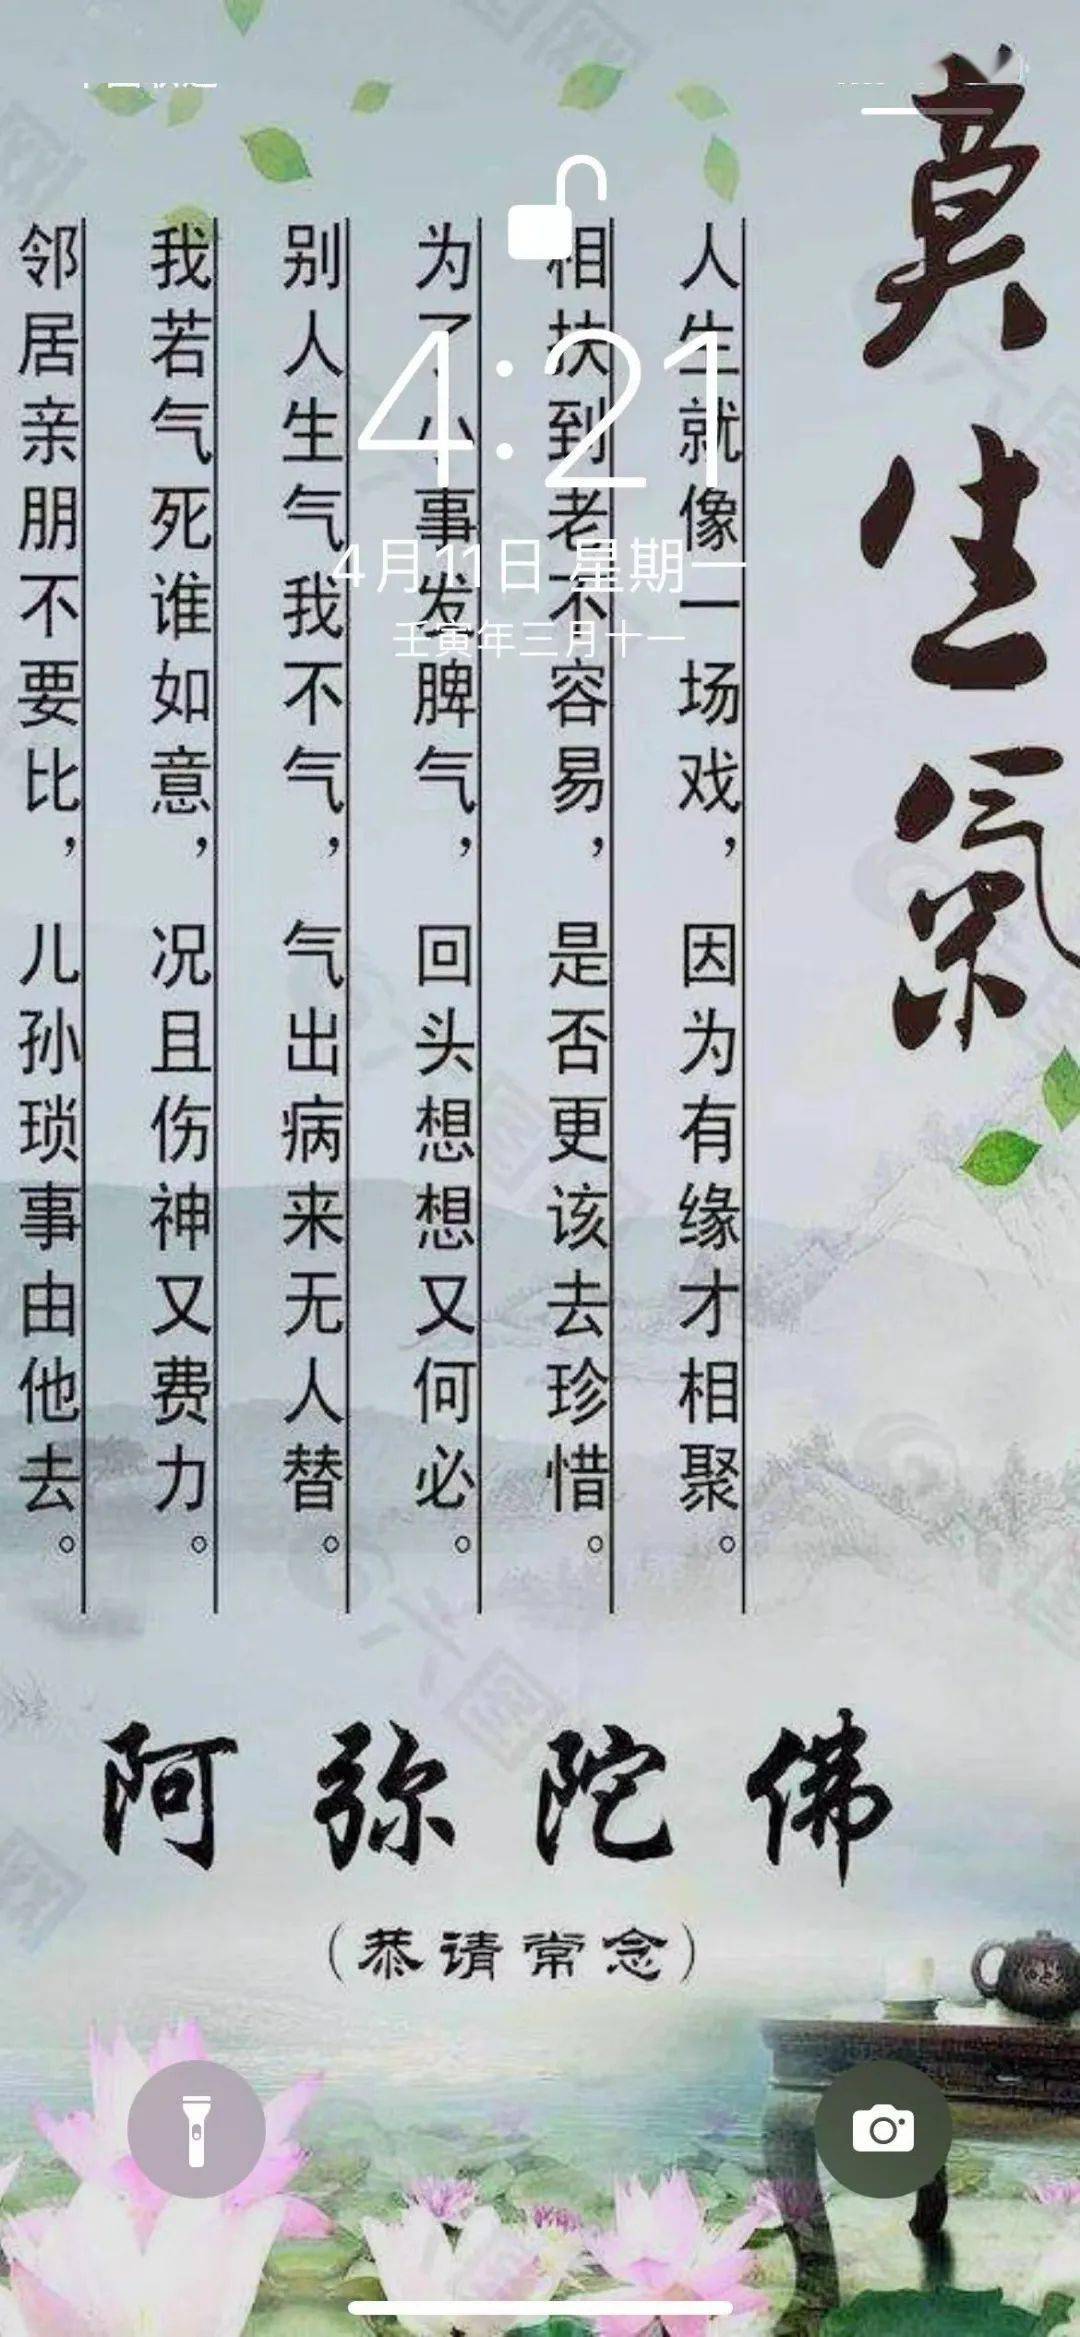 莫生氣
4:21
4月11日 星期一
壬寅年三月十一
人生就像一场戏，因为有缘才相聚。
相扶到老不容易，是否更该去珍惜。
为了小事发脾气，回头想想又何必。
别人生气我不气，气出病来无人替。
我若气死谁如意，况且伤神又费力。
邻居亲朋不要比，儿孙琐事由他去。
阿弥陀佛
（恭请常念）